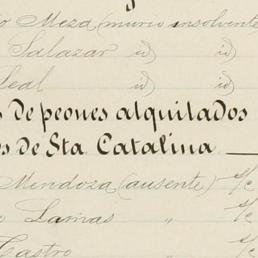 o Meza (murió insolvente
Salazar id) id)
Leal id) id)
s de peones alquilados
es de Sta Catalina
Mendoza (ausente) s/c
o Lamas " s/c
Castro " s/c